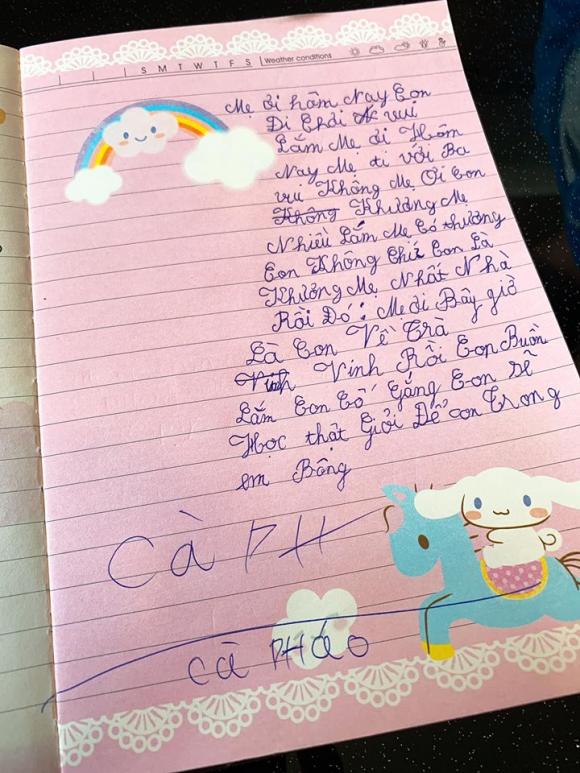 S M T W T F S Weather conditions
Mẹ ơi hôm Nay Con
Đi Chơi vui
Lắm Mẹ ơi Hôm
Nay Mẹ đi với Ba
vui Không Mẹ Ơi Con
Không Thương Mẹ
Nhiều Lắm Mẹ Có thương
Con Không Chứ Con Là
Thương Mẹ Nhất Nhà
Rồi Đó: Mẹ ơi Bây giờ
Là Con Về Trà
Vinh Vinh Rồi Con Buồn
Lắm Con Cố Gắng Con sẽ
Học thật Giỏi Để Con Trong
em Bông
CÀ PH
CÀ PHÁO